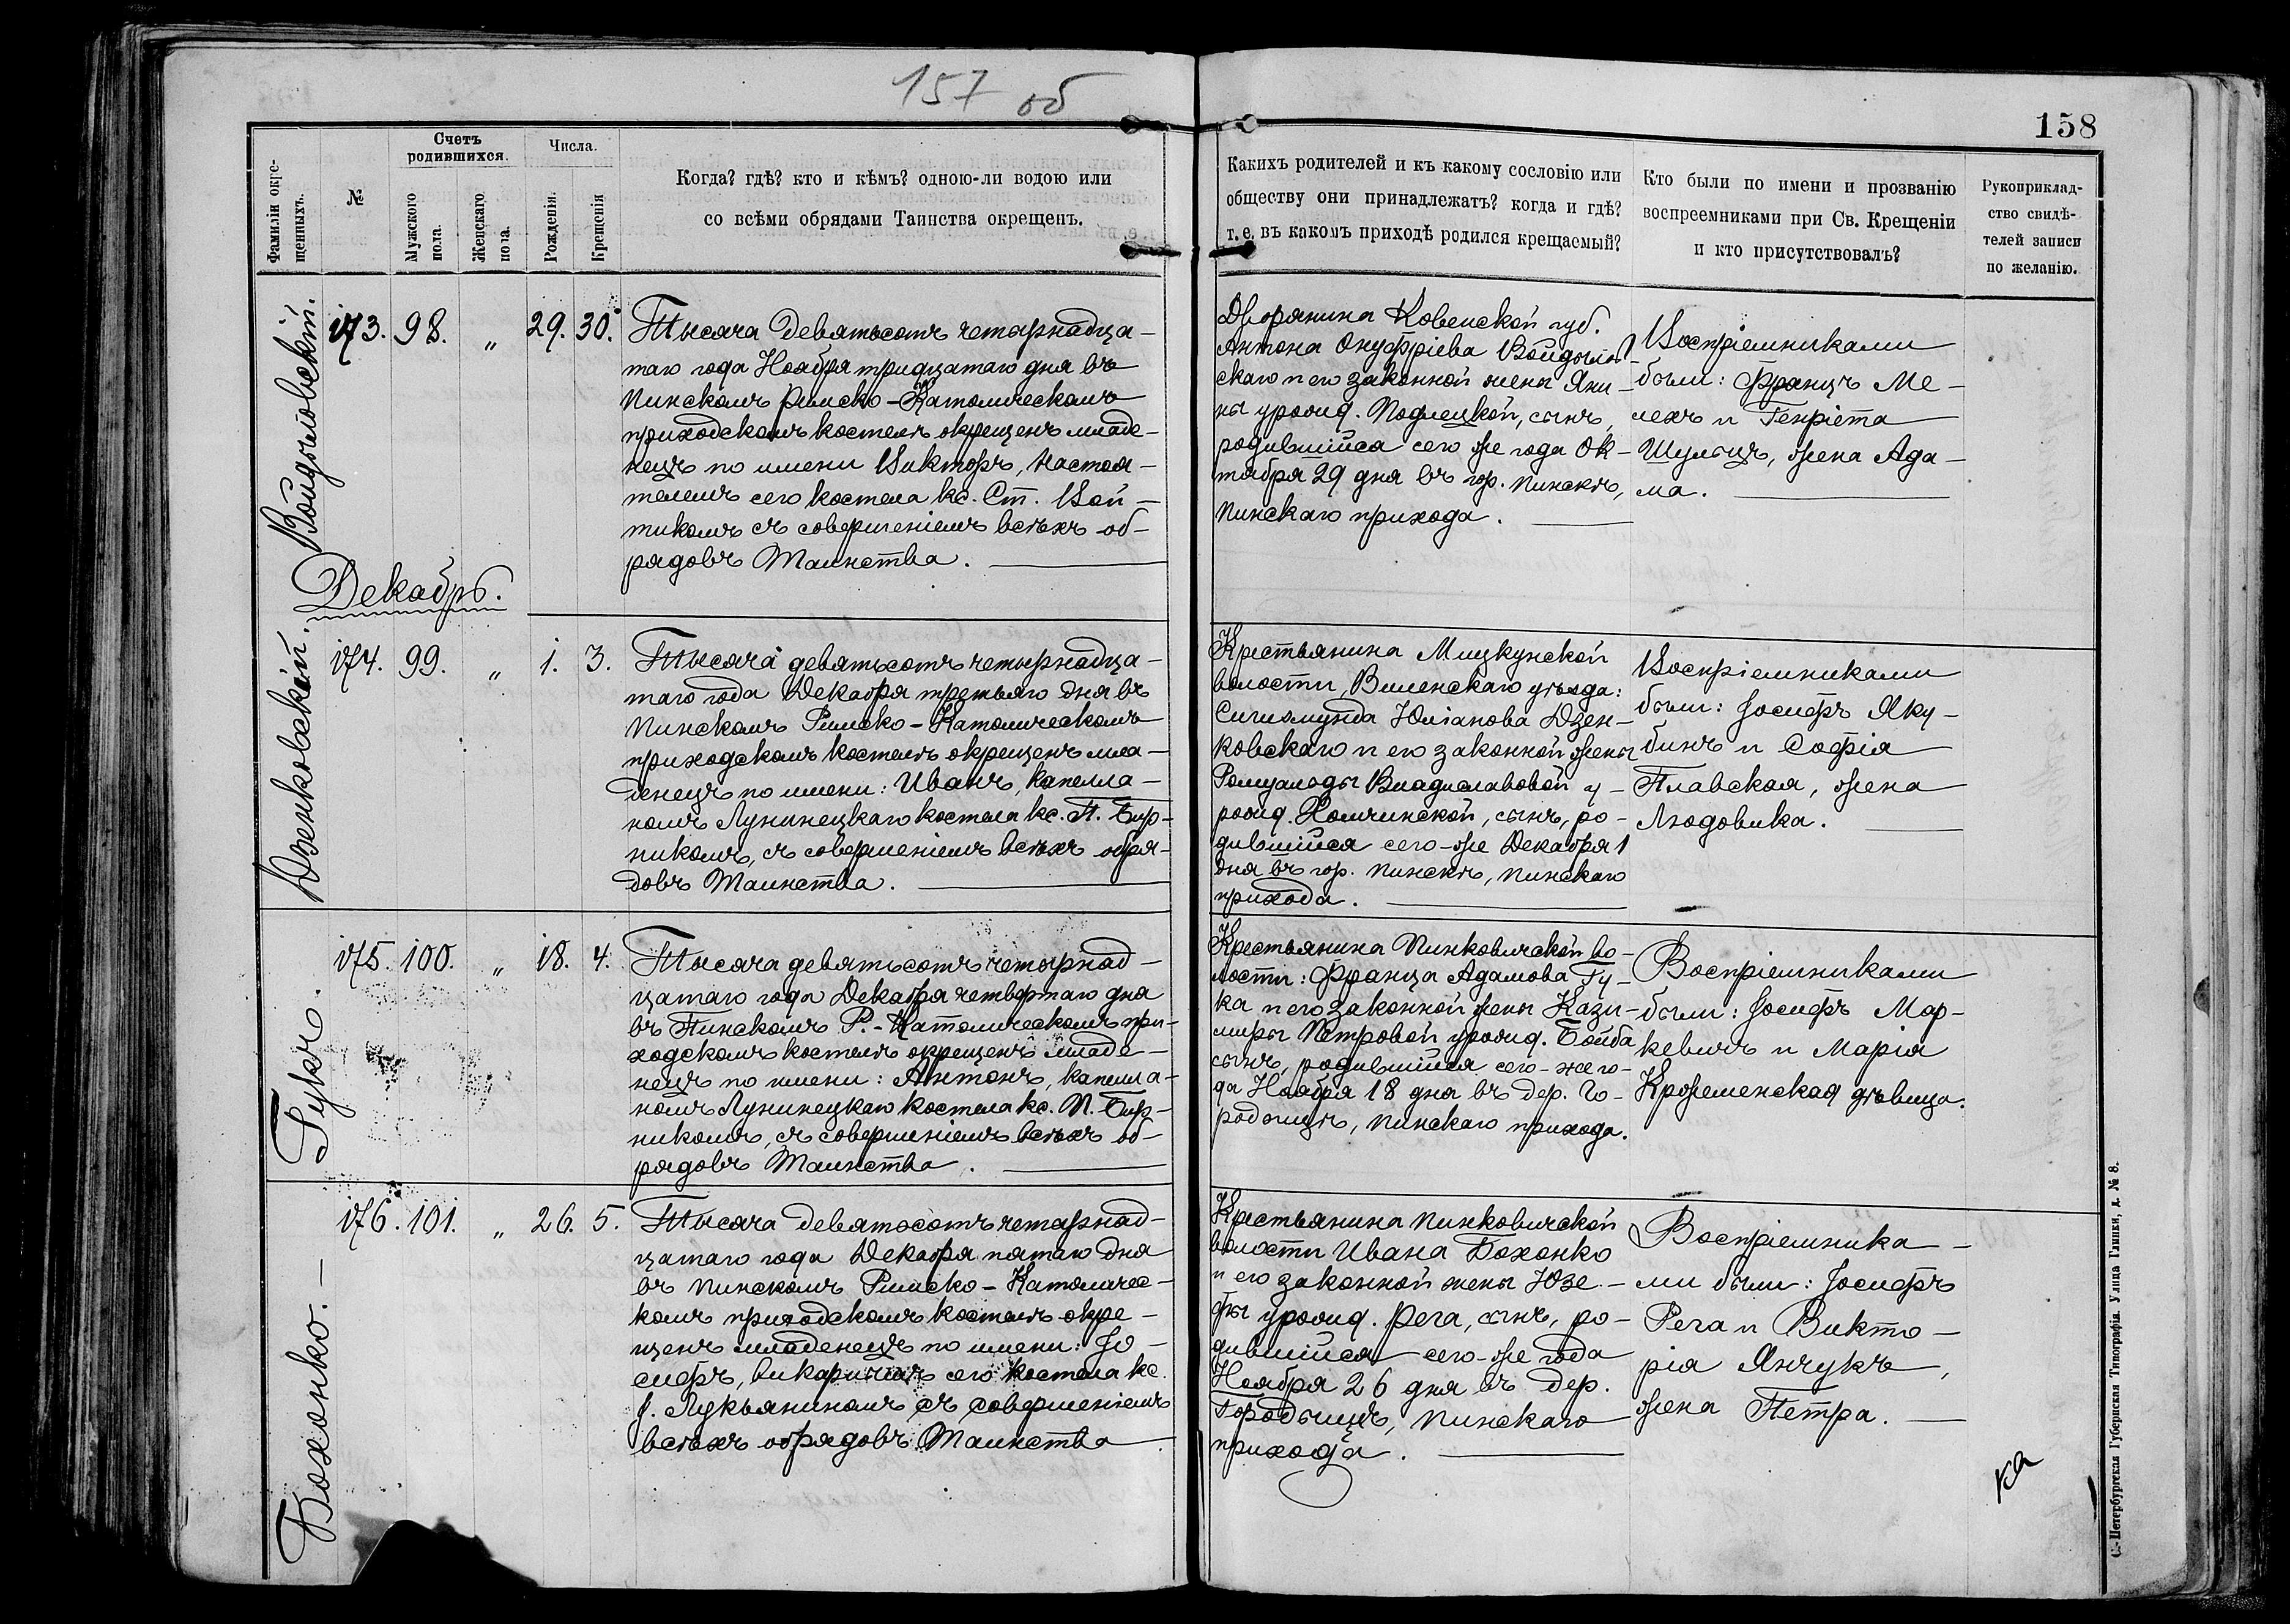 157 об
158
Фамиліи окре-
щенныхъ.
№
Счетъ
родившихся.
Мужского
пола.
Женскаго
пола.
Числа.
Рожденія.
Крещенія
Когда? гдѣ? кто и кѣмъ? одною-ли водою или
со всѣми обрядами Таинства окрещенъ.
Какихъ родителей и къ какому сословію или
обществу они принадлежатъ? когда и гдѣ?
т. е. въ какомъ приходѣ родился крещаемый?
Кто были по имени и прозванію
воспреемниками при Св. Крещеніи
и кто присутствовалъ?
Рукоприклад-
ство свидѣ-
телей записи
по желанію.
Войдыловскій.
173. 98. „ 29. 30.
Тысяча девятьсотъ четырнадца-
таго года Ноября тридцатаго дня въ
Пинскомъ Римско-Католическомъ
приходскомъ костелѣ окрещенъ младе-
нецъ по имени Викторъ, Настоя-
телемъ сего костела кс. Ст. Вой-
тикомъ съ совершеніемъ всѣхъ об-
рядовъ Таинства.
Дворянина Ковенской губ.
Антона Онуфріева Войдылов-
скаго и его законной жены Яни-
ны урожд. Подлецкой, сынъ,
родившійся сего же года Ок-
тября 29 дня въ гор. Пинскѣ,
Пинскаго прихода.
Воспріемниками
были: Францъ Ме-
лехъ и Генріета
Шульцъ, жена Ада-
ма.
Декабрь.
Дзенковскій.
174. 99. „ 1. 3.
Тысяча девятьсотъ четырнадца-
таго года Декабря третьяго дня въ
Пинскомъ Римско-Католическомъ
приходскомъ костелѣ окрещенъ мла-
денецъ по имени: Иванъ, капелла-
номъ Лунинецкаго костела кс. П. Бир-
никомъ, съ совершеніемъ всѣхъ обря-
довъ Таинства.
Крестьянина Мицкунской
волости, Виленскаго уѣзда:
Сигизмунда Юліанова Дзен-
ковскаго и его законной жены
Ромуальды Владиславовой у-
рожд. Хомчинской, сынъ, ро-
дившійся сего-же Декабря 1
дня въ гор. Пинскѣ, Пинскаго
прихода.
Воспріемниками
были: Іосифъ Яку-
бинъ и Софія
Плавская, жена
Людовика.
Гукъ.
175. 100. „ 18. 4.
Тысяча девятьсотъ четырнад-
цатаго года Декабря четвертаго дня
въ Пинскомъ Р.-Католическомъ при-
ходскомъ костелѣ окрещенъ младе-
нецъ по имени: Антонъ, капелла-
номъ Лунинецкаго костела кс. П. Бир-
никомъ, съ совершеніемъ всѣхъ об-
рядовъ Таинства.
Крестьянина Пинковичской во-
лости: Франца Адамова Гу-
ка и его законной жены Кази-
миры Петровой урожд. Бойба
сынъ, родившійся сего-же го-
да Ноября 18 дня въ дер. Го-
родыщѣ, Пинскаго прихода.
Воспріемниками
были: Іосифъ Мар-
кевичъ и Марія
Кроженевская дѣвица.
Бохонко.
176. 101. „ 26. 5.
Тысяча девятьсотъ четырнад-
цатаго года Декабря пятаго дня
въ Пинскомъ Римско-Католичес-
комъ приходскомъ костелѣ окре-
щенъ младенецъ по имени: Іо-
сифъ, викаріемъ сего костела кс.
І. Лукьяниномъ съ совершеніемъ
всѣхъ обрядовъ Таинства
Крестьянина Пинковичской
волости Ивана Бохонко
и его законной жены Юзе-
фы урожд. Рега, сынъ, ро-
дившійся сего-же года
Ноября 26 дня въ дер.
Городыщѣ, Пинскаго
прихода.
Воспріемника-
ми были: Іосифъ
Рега и Викто-
рія Янчукъ,
жена Петра.
С.-Петербургская Губернская Типографія. Улица Глинки, д. № 8.